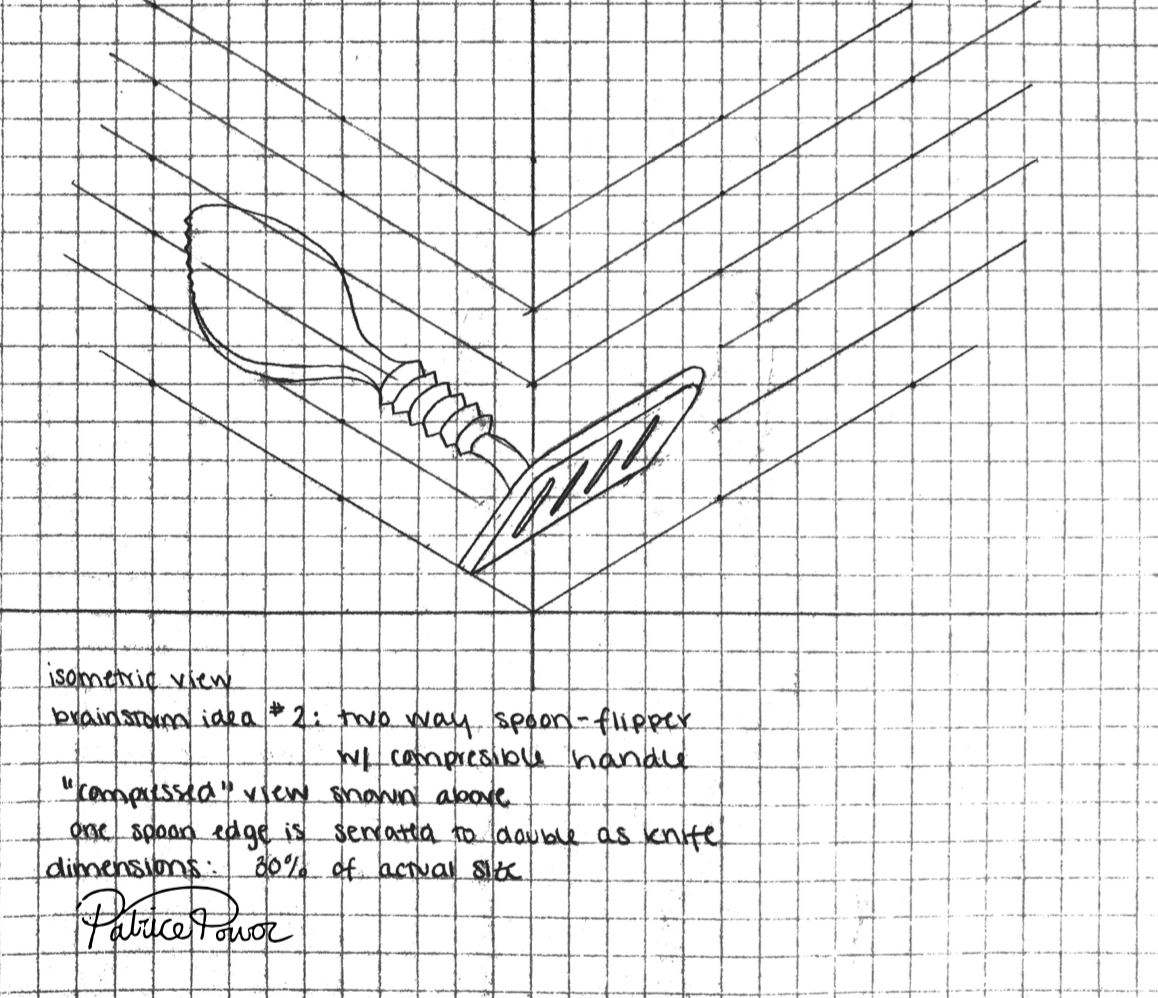 isometric view
brainstorm idea #2: two way spoon-flipper
w/ compresible handle
"compressed" view shown above
one spoon edge is serrated to double as knife
dimensions: 30% of actual size
Patrice Power